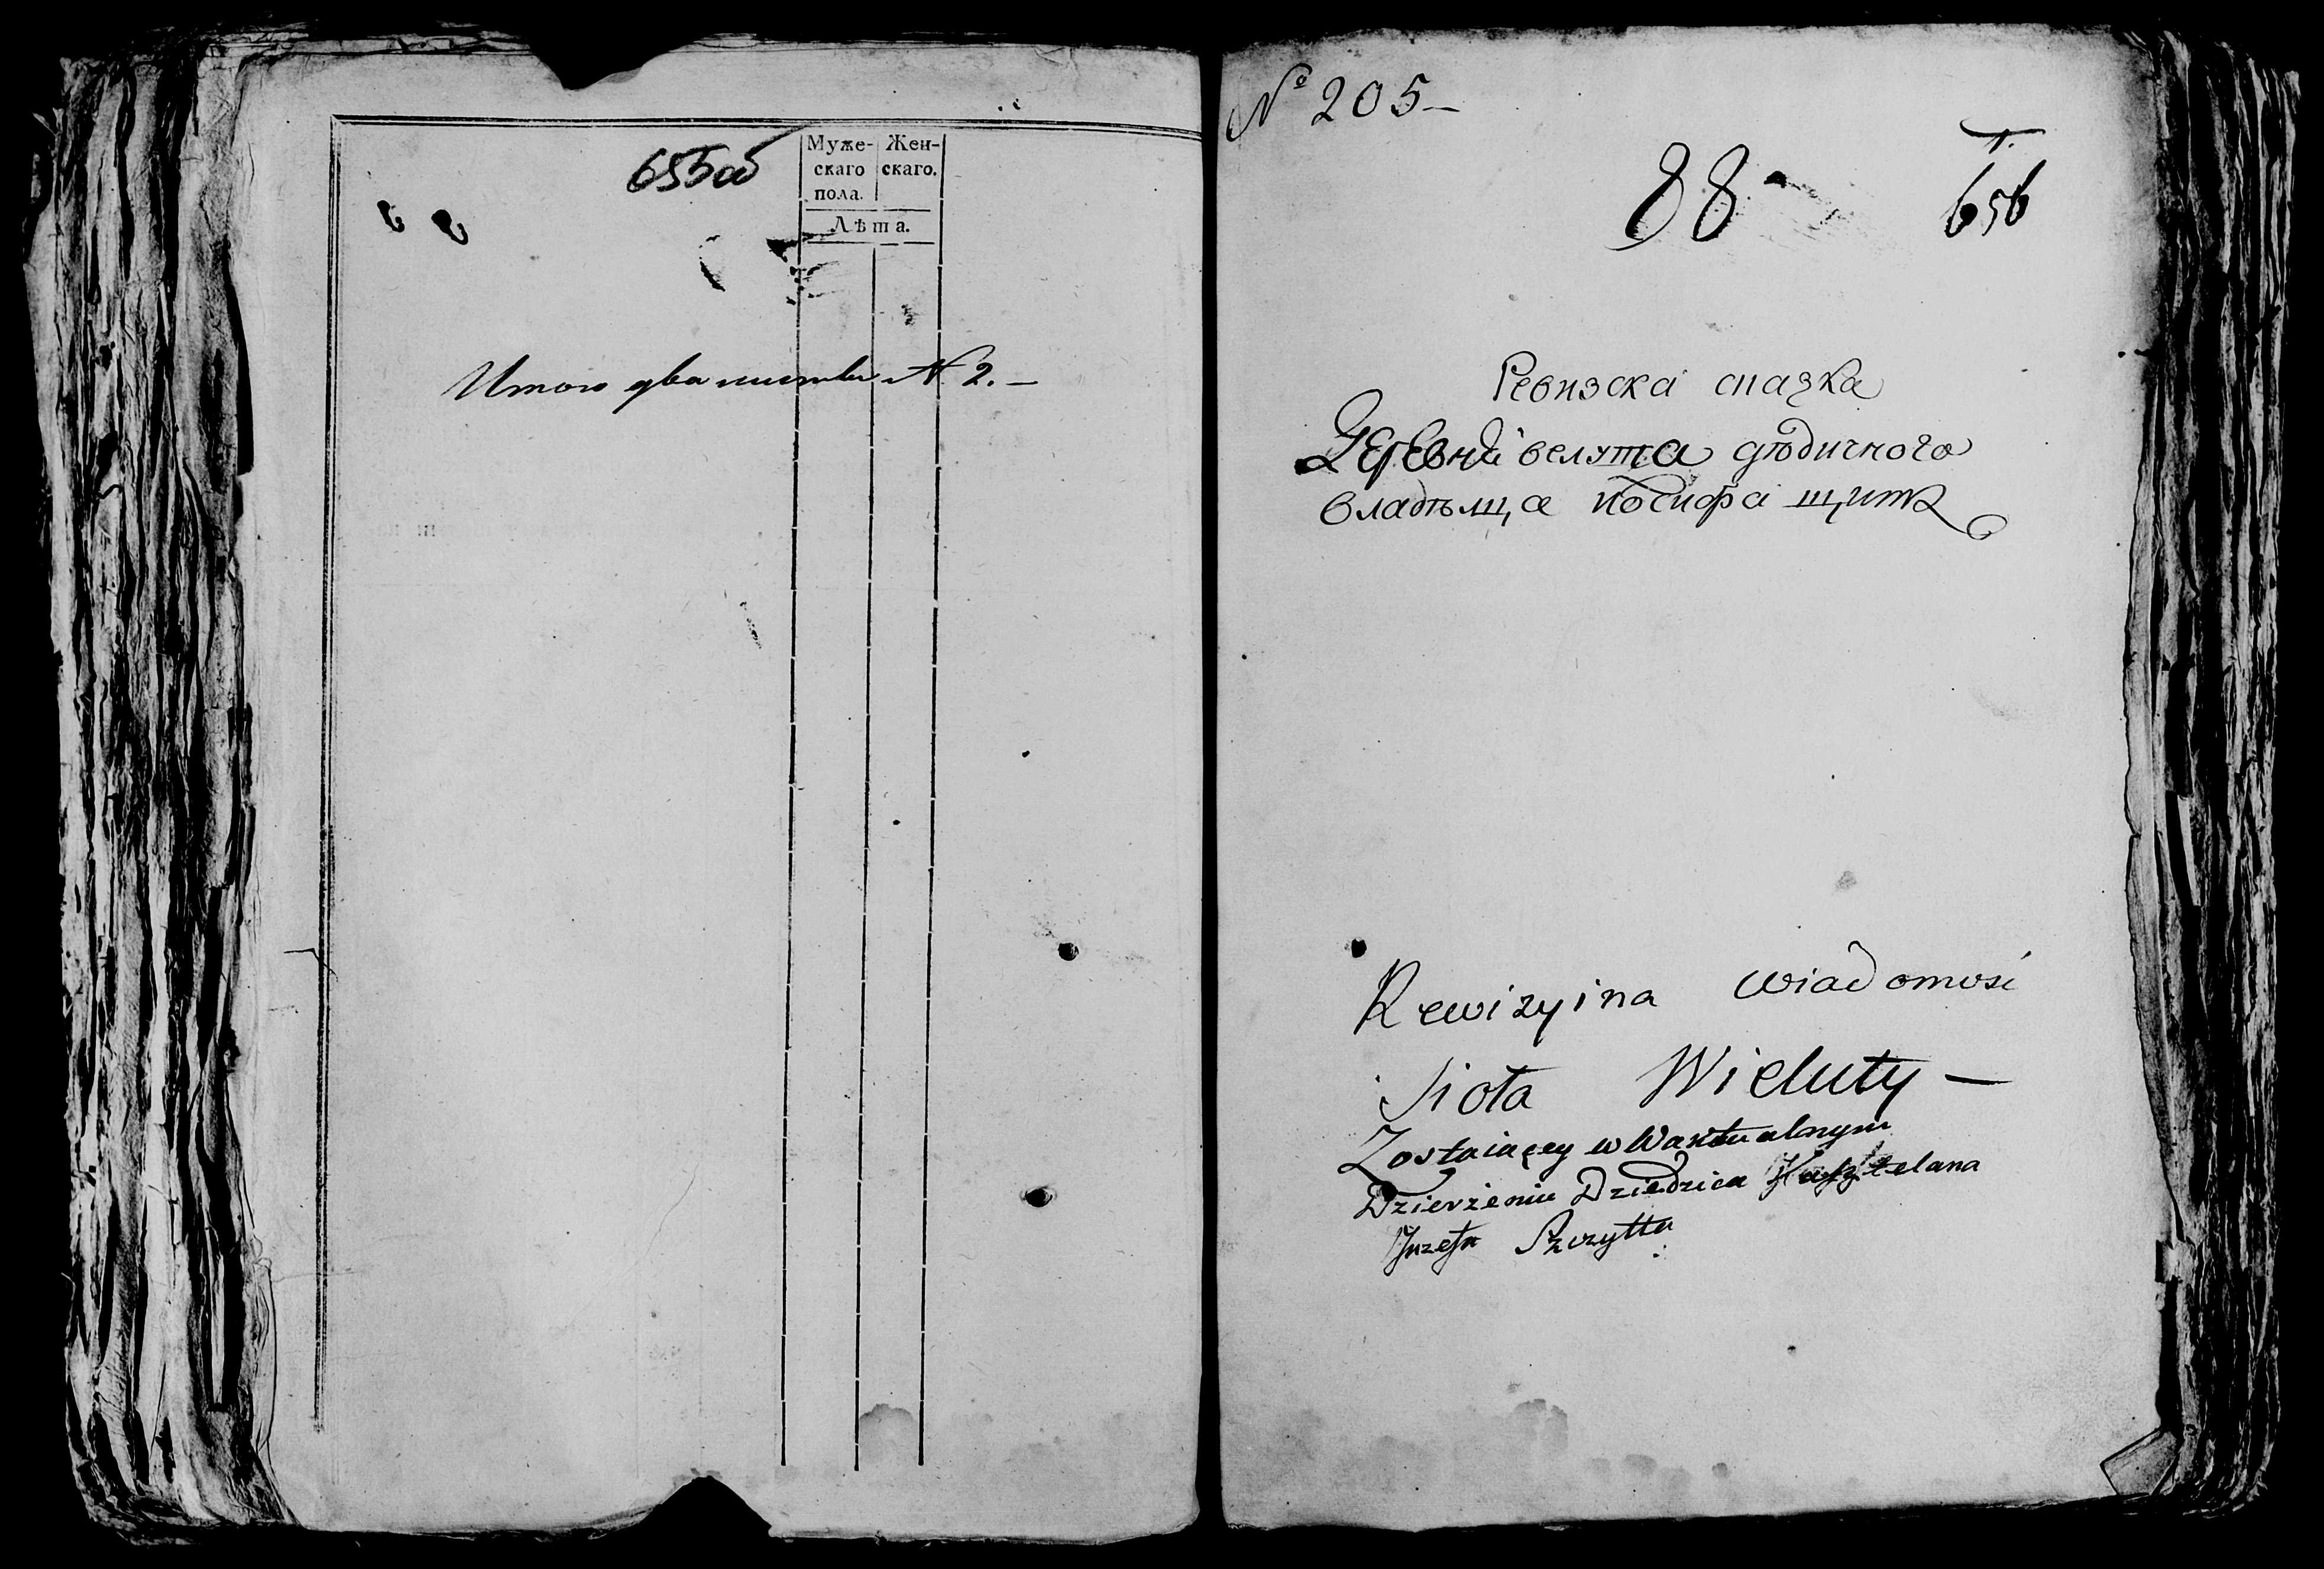 655об
Муже-
скаго
пола.
Жен-
скаго.
Лѣта.
Итого два листа № 2. —
№ 205 —
88
1.
656
Ревизска сказка
Деревни велута дѣдичного
владѣлца иосифа щита
Rewizyina wiadomosć
Sioła Wieluty —
Zostaiącey w Waktualnym
Dzierżeniu Dziedzica Kasztelana
Juzefa Szczytta